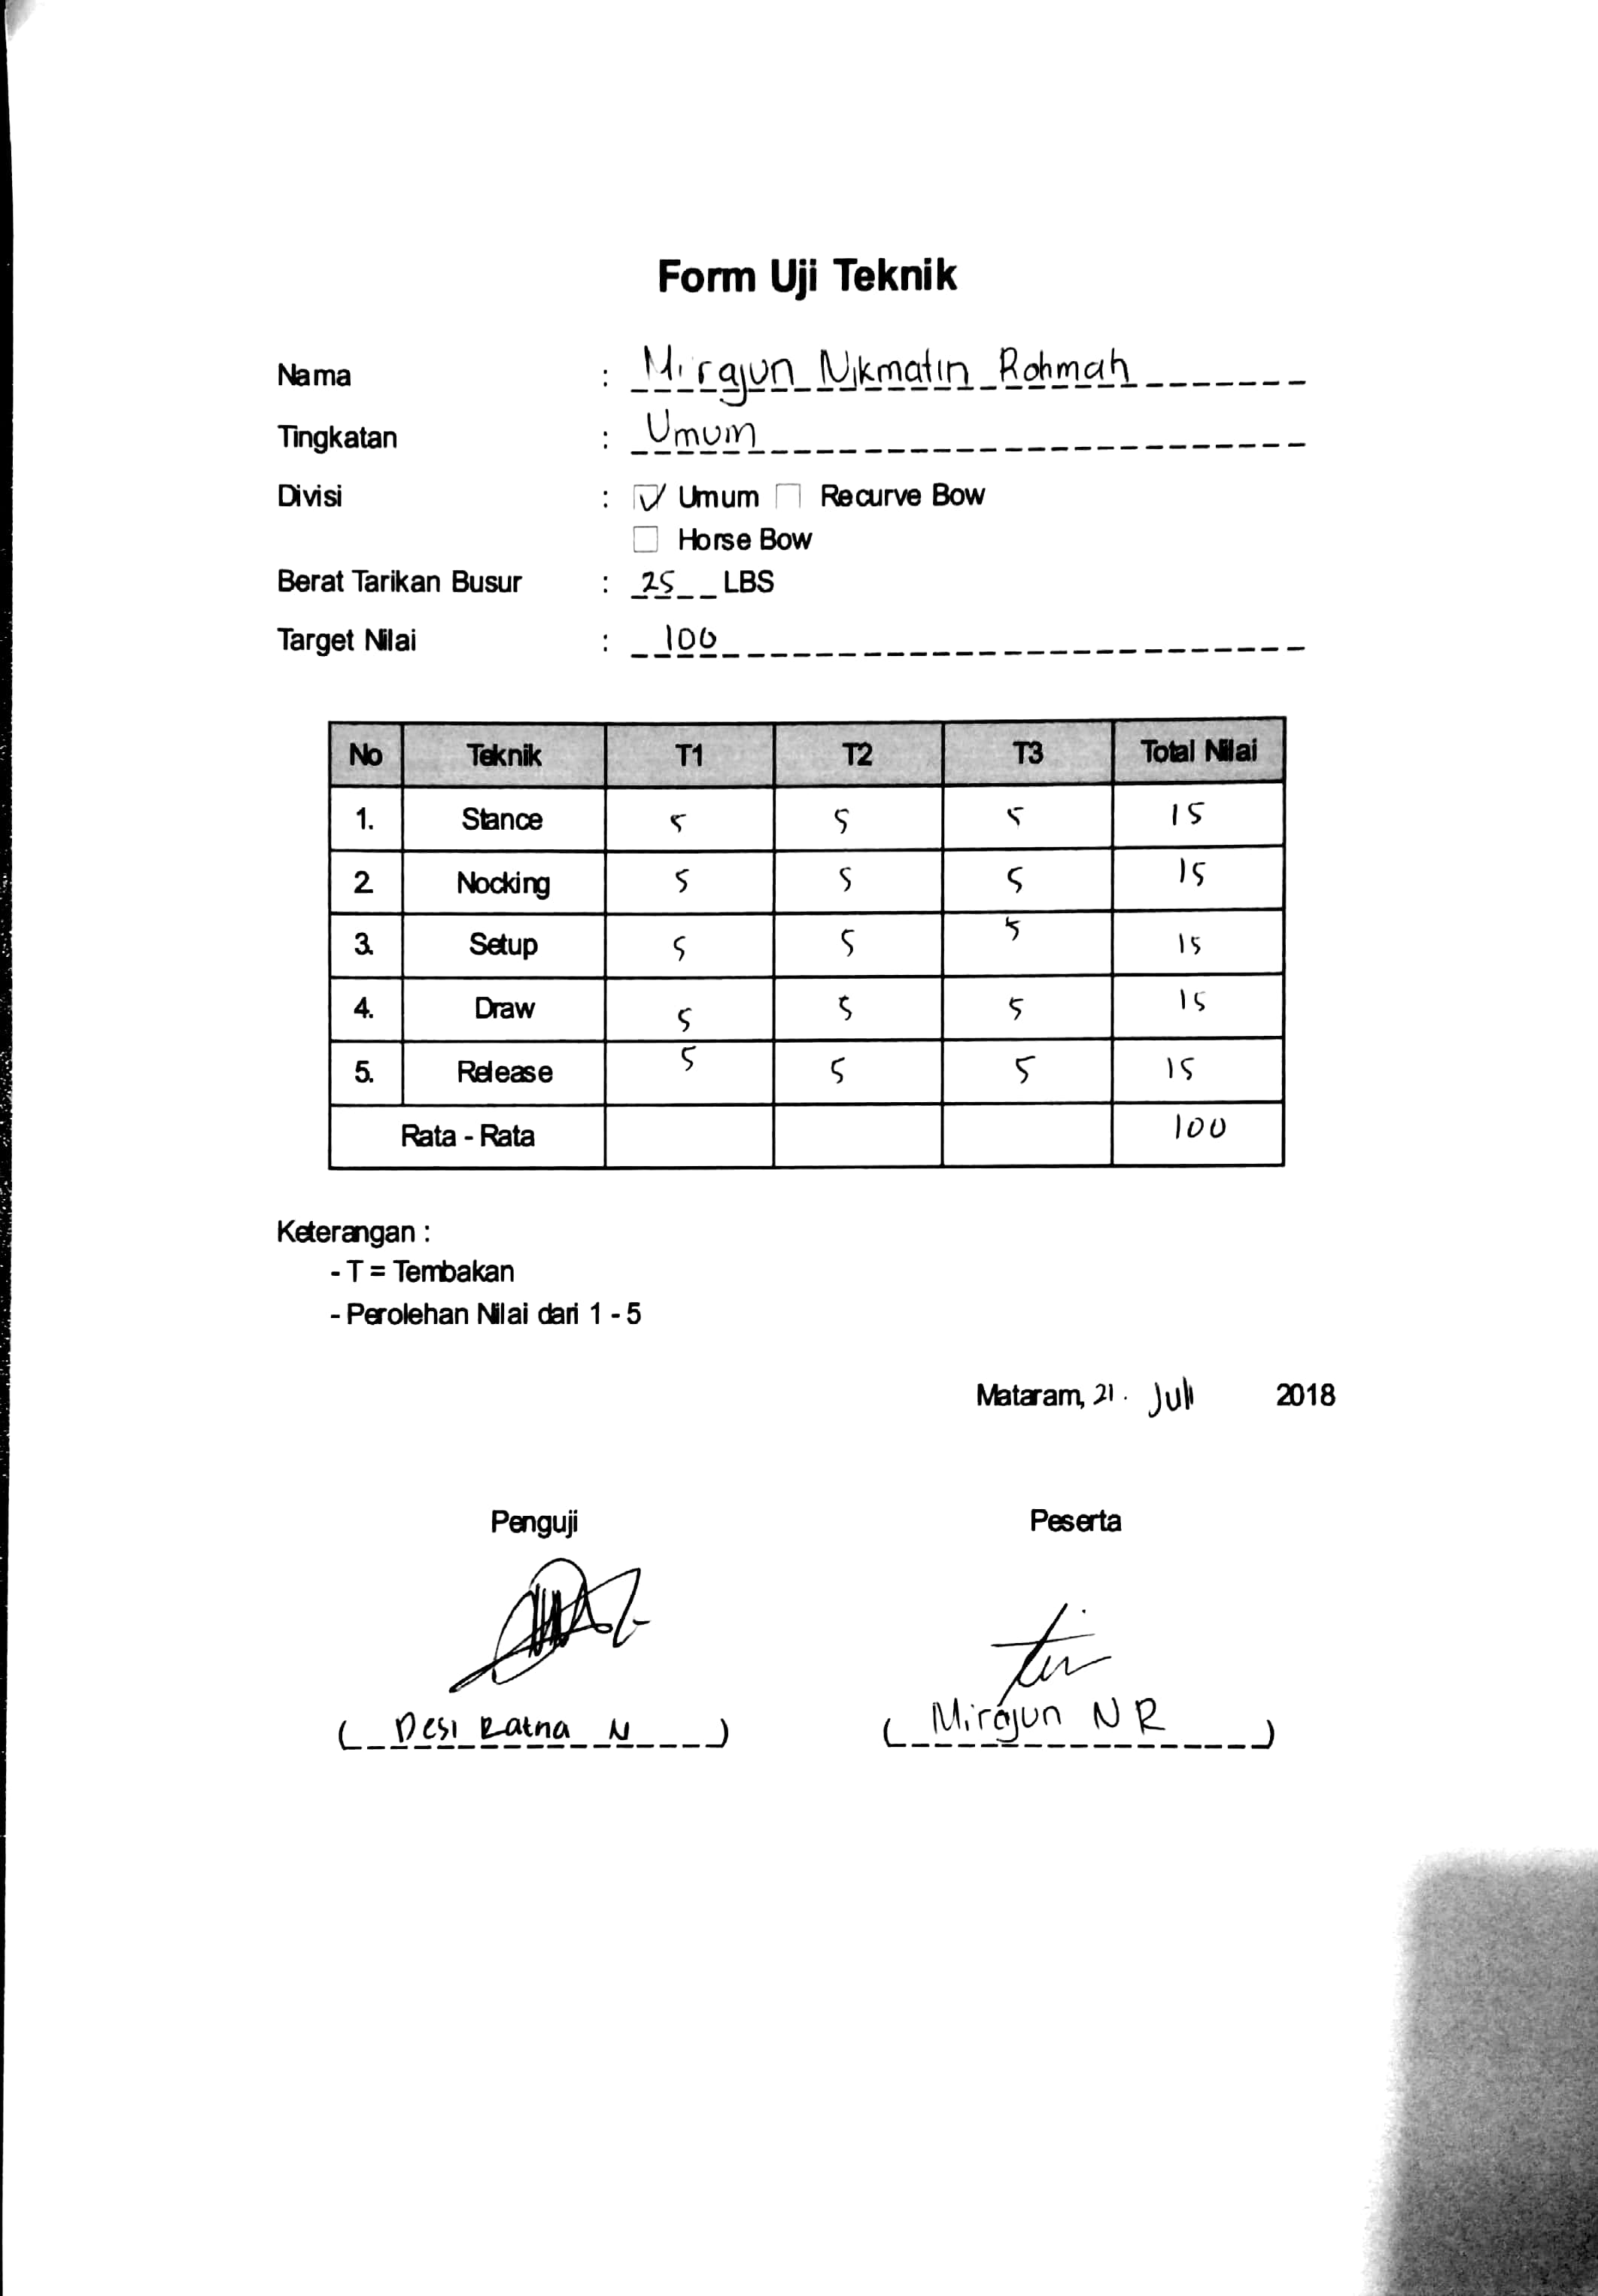 Form Uji Teknik
Nama : Mirajun Nikmatin Rohmah
Tingkatan : Umum
Divisi : ☑ Umum ☐ Recurve Bow
☐ Horse Bow
Berat Tarikan Busur : 25 LBS
Target Nilai : 100
No Teknik T1 T2 T3 Total Nilai
1. Stance 5 5 5 15
2. Nocking 5 5 5 15
3. Setup 5 5 5 15
4. Draw 5 5 5 15
5. Release 5 5 5 15
Rata - Rata 100
Keterangan :
- T = Tembakan
- Perolehan Nilai dari 1 - 5
Mataram, 21. Juli 2018
Penguji Peserta
( Desi Ratna N ) ( Mirajun N R )